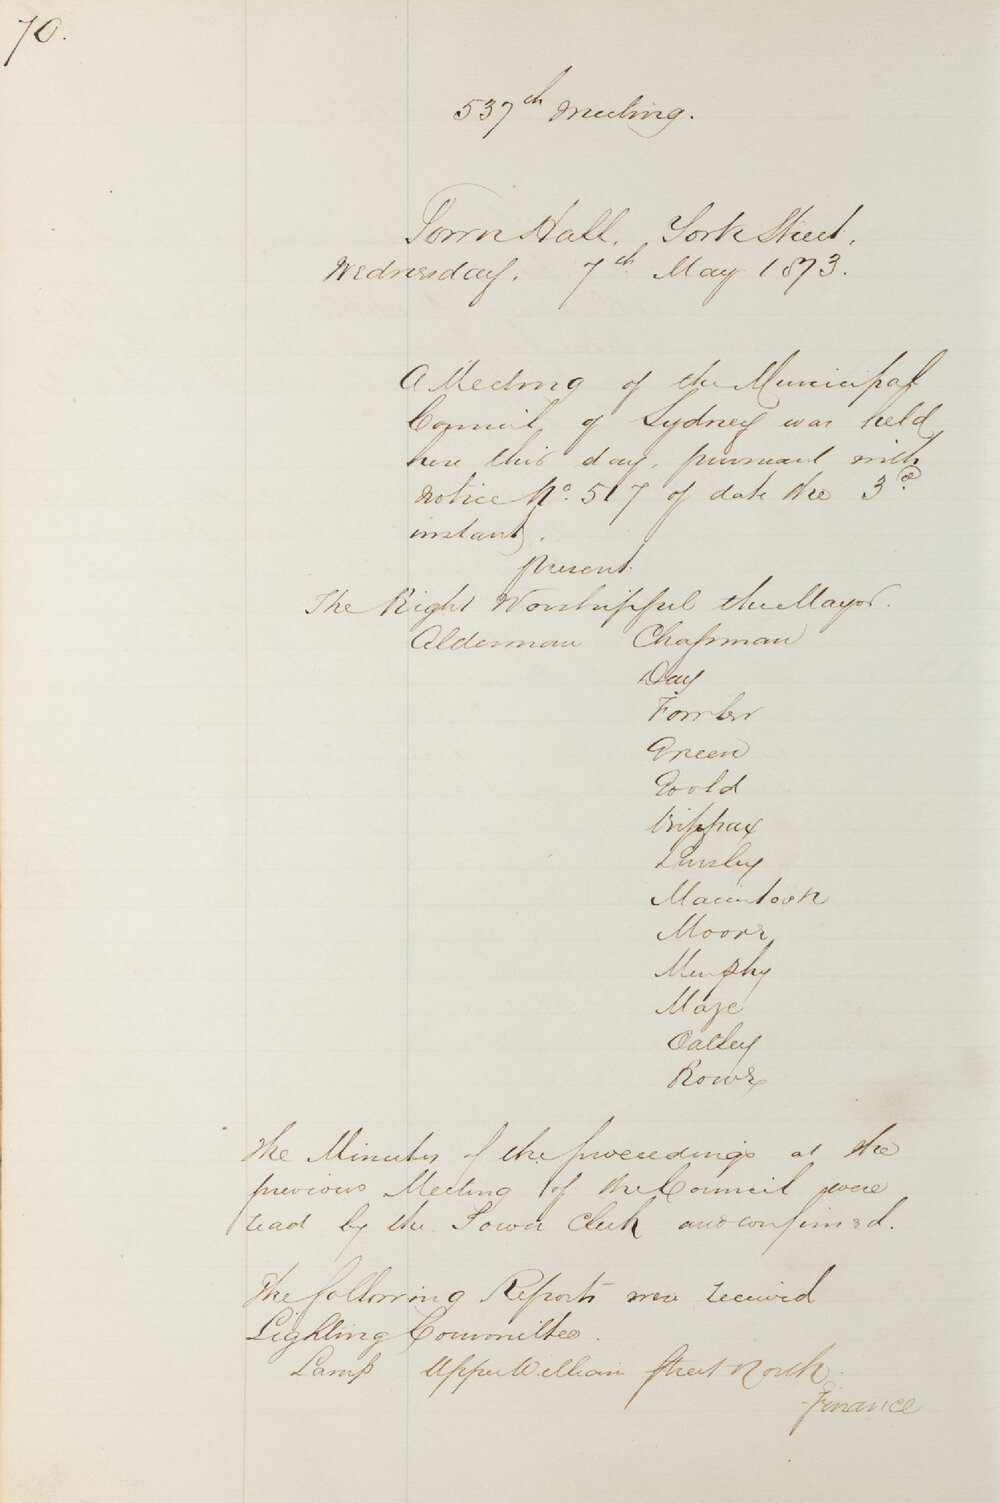 70.
537th Meeting.
Town Hall, York Street,
Wednesday, 7th May 1873.
A Meeting of the Municipal
Council of Sydney was held
here this day, pursuant with
notice No. 517 of date the 3d
instant,
present.
The Right Worshipful the Mayor.
Alderman Chapman
Day
Fowler
Green
Goold
Kippax
Linsley
Macintosh
Moore
Murphy
Maze
Oatley
Rowe
The Minutes of the proceedings at the
previous Meeting of the Council were
read by the Town Clerk and confirmed.
The following Reports were received
Lighting Committee.
Lamp Upper William Street North.
Finance